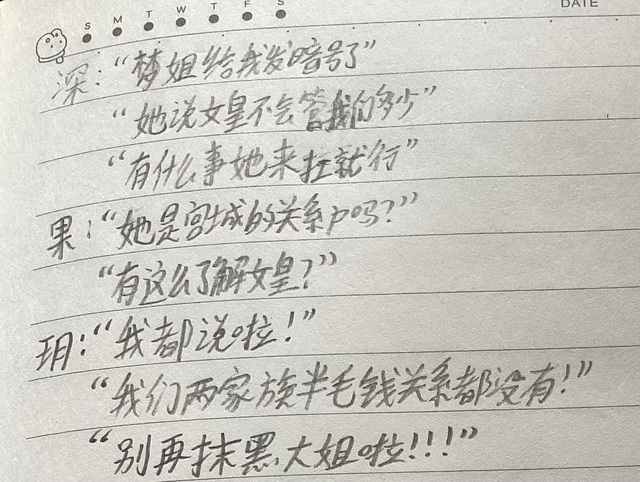 S M T W T F S
DATE
深：“梦姐给我发暗号了”
“她说女皇不会管我们多少”
“有什么事她来扛就行”
果：“她是宫城的关系户吗？”
“有这么了解女皇？”
玥：“我都说啦！”
“我们两家族半毛钱关系都没有！”
“别再抹黑大姐啦！！！”